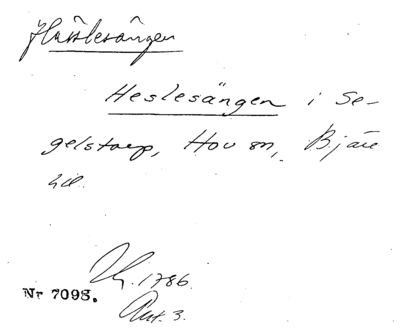 Hässlesängen
Heslesängen i Se-
gelstorp, Hov sn, Bjäre
hd.
1786.
Nr 7098.
Akt. 3.